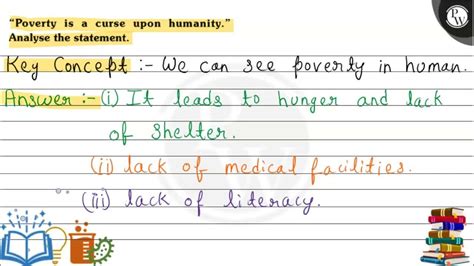 “Poverty is a curse upon humanity.”
Analyse the statement.
Key Concept :- We can see poverty in human.
Answer :- (i) It leads to hunger and lack
of shelter.
(ii) lack of medical facilities.
(iii) lack of literacy.